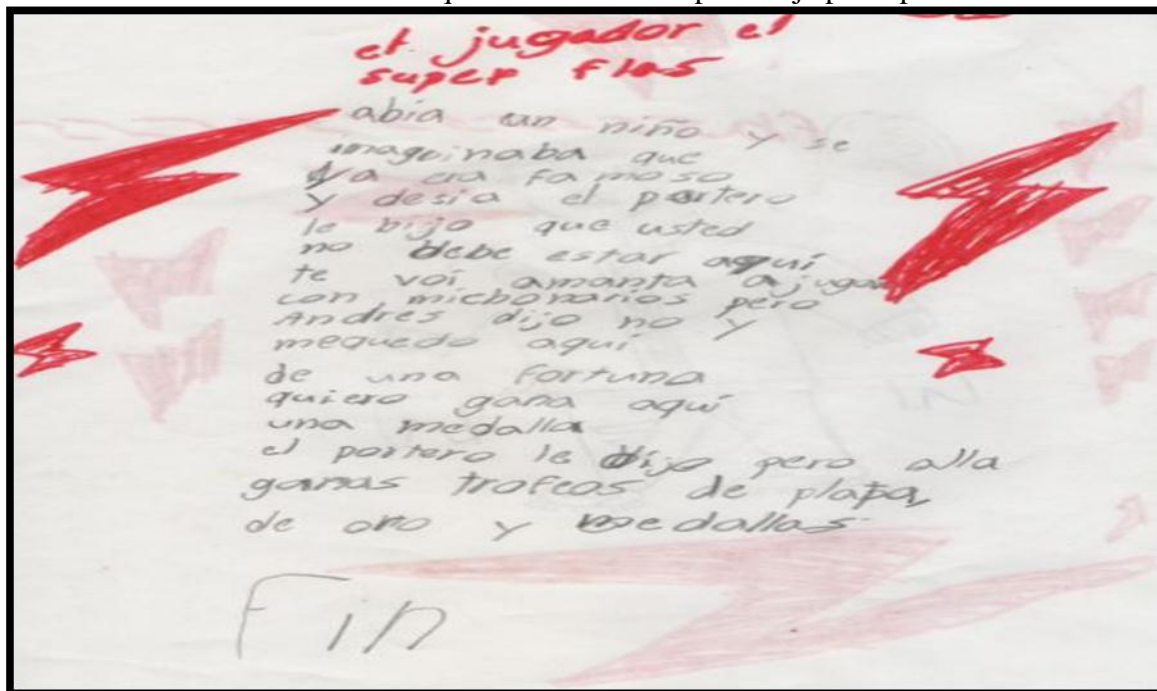 el jugador el
super flas
abia un niño y se
imaguinaba que
ya era famoso
y desia el portero
le bijo que usted
no debe estar aquí
te voi amanta ajugar
con michonarios pero
Andres dijo no y
mequedo aquí
de una fortuna
quiero gana aquí
una medalla
el portero le dijo pero alla
ganas trofeos de plata,
de oro y medallas
Fin